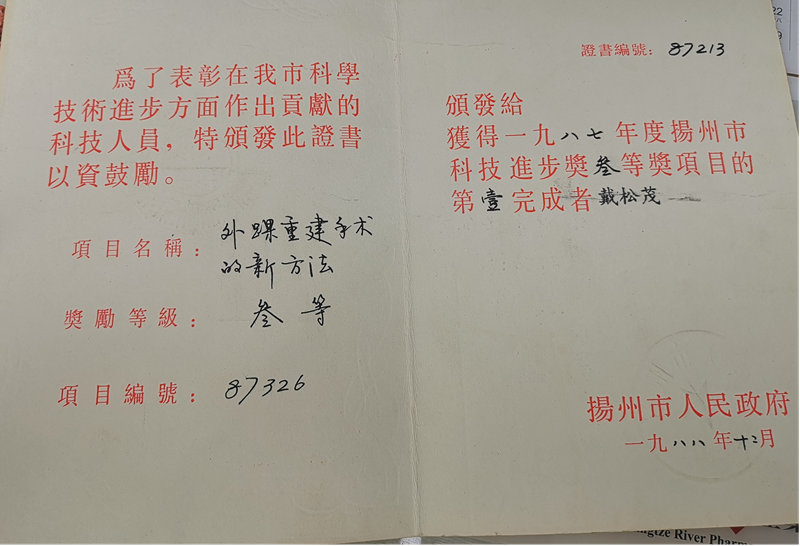 爲了表彰在我市科學
技術進步方面作出貢獻的
科技人員，特頒發此證書
以資鼓勵。
項目名稱：外踝重建手术
的新方法
獎勵等級：叁等
項目編號：87326
證書編號：87213
頒發給
獲得一九八七年度揚州市
科技進步獎叁等獎項目的
第壹完成者戴松茂
揚州市人民政府
一九八八年十二月
River Pharm